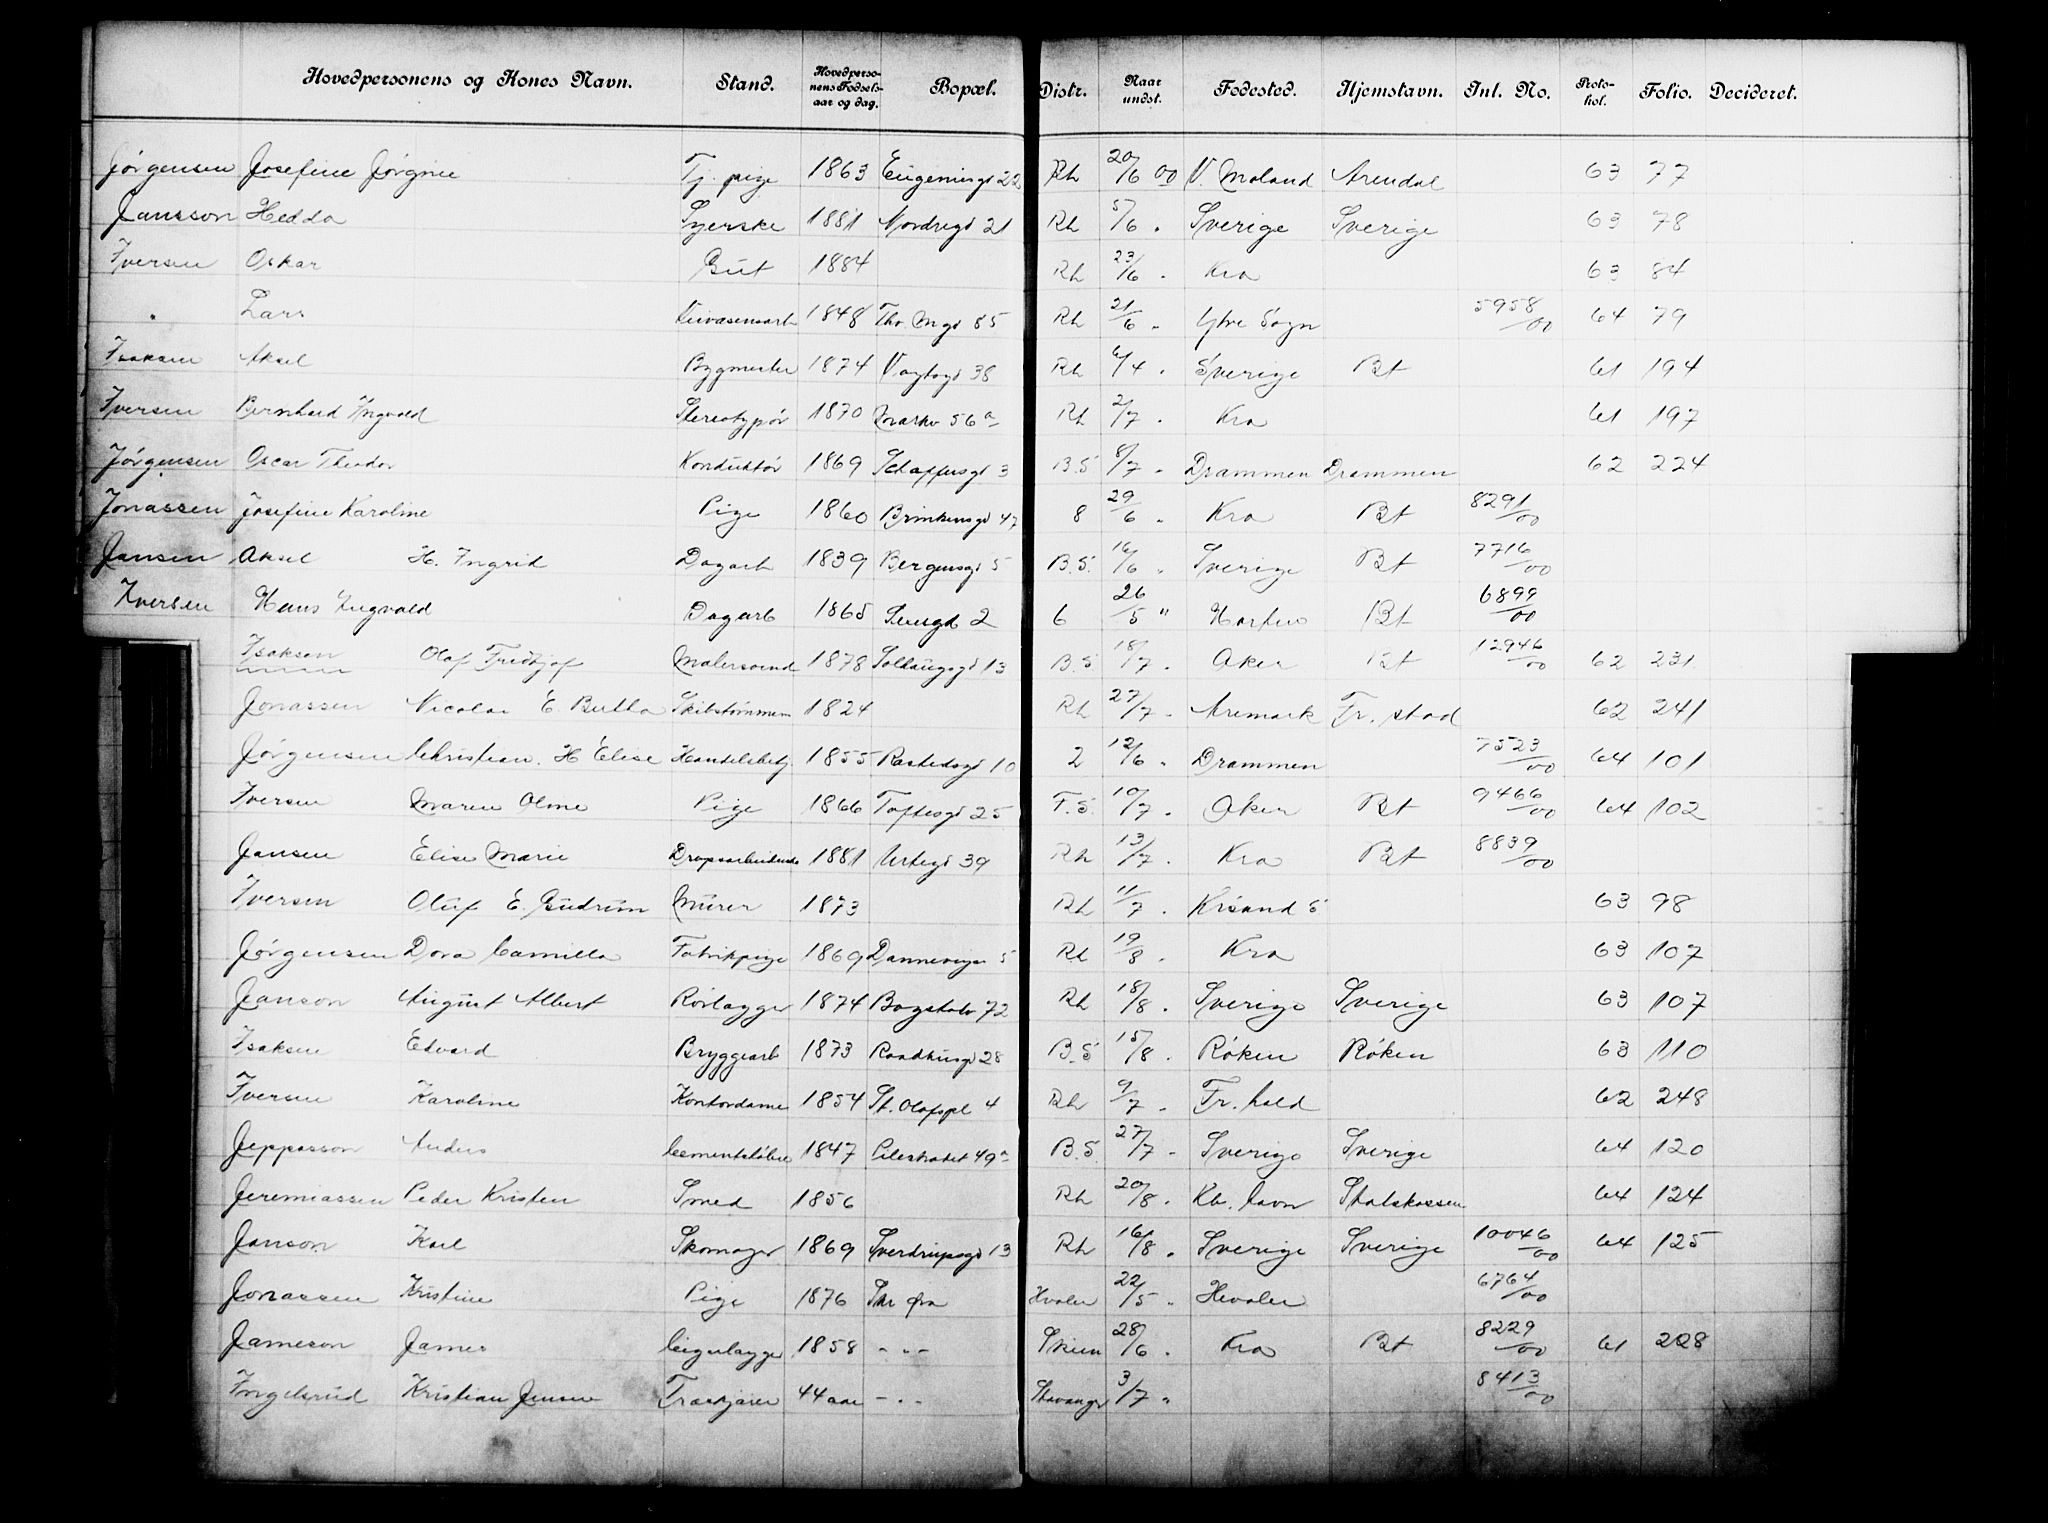 Hovedpersonens og Kones Navn. Stand. Hovedperso-nens Fødsels-aar og dag. Bopæl. Distr. Naar undst. Fødested. Hjemstavn. Inl. No. Proto-kol. Folio. Decideret.
Jørgensen Josefine Jørgine Tj. pige 1863 Eugeniesgd 22 Rh 20/6 00 V. Moland Arendal 63 77
Jansson Hedda Syerske 1881 Nordregd 21 Rh 5/6 " Sverige Sverige 63 78
Iversen Oskar Gut 1884 Rh 23/6 " Kra 63 84
" Lars 1848 Thv. Mgd 85 Rh 21/6 " Ytre Sogn 5958/00 64 79
Isaksen Aksel Bygmester 1874 Vogtsgd 38 Rh 6/4 " Sverige Bt 61 194
Iversen Bernhard Ingvald Stereotypør 1870 Markv 56a Rh 2/7 " Kra 61 197
Jørgensen Oscar Theodor Konduktør 1869 Schaffersgd 3 B.S. 8/7 " Drammen Drammen 62 224
Jonassen Josefine Karoline Pige 1860 Brinkensgd 47 8 29/6 " Kra Bt 8291/00
Jansen Aksel H. Ingrid Dagarb 1839 Bergensgd 5 B.S. 16/6 " Sverige Bt 7716/00
Iversen Hans Ingvald Dagarb 1865 2 6 26/5 " Horten Bt 6899/00
Isaksen Olaf Fridtjof Malersvend 1878 13 B.S 18/7 " Aker Bt 12946/00 62 231
Jonassen Nicolai E. Bertha Skibstømmerm 1824 Rh 27/7 " Aremark Fr. stad 62 241
Jørgensen Christian. H Elise Handelsbetj 1855 Rostedsgd 10 2 12/6 " Drammen 7523/00 64 101
Iversen Maren Oline Pige 1866 Toftesgd 25 F.S. 10/7 " Aker Bt 9466/00 64 102
Jansen Elise Marie Dropsarbeiderske 1881 Urtegd 39 Rh 13/7 " Kra Bt 8839/00
Iversen Oluf E. Gudrun Murer 1873 Rh 11/7 " Krisand S 63 98
Jørgensen Dora Camilla Fabrikpige 1869 Dannevigsv 5 Rh 19/8 " Kra 63 107
Janson August Albert Rørlægger 1874 Bogstadv 72 Rh 18/8 " Sverige Sverige 63 107
Isaksen Edvard Bryggearb 1873 Raadhusgd 28 B.S 15/8 " Røken Røken 63 110
Iversen Karoline Kontordame 1854 St. Olafspl 4 Rh 9/7 " Fr. hald 62 248
Jeppesson Anders Cementstøber 1847 Pilestradet 49a B.S. 27/7 " Sverige Sverige 64 120
Jeremiassen Peder Kristen Smed 1856 Rh 20/8 " Kb. havn Statskassen 64 124
Janson Karl Skomager 1869 Sverdrupsgd 13 Rh 16/8 " Sverige Sverige 10046/00 64 125
Jonassen Kristine Pige 1876 Hvaler 22/5 " Hvaler 6764/00
Jameson James 1858 - " - Skien 28/6 " Kra Bt 8229/00 61 208
Ingelsrud Kristian Jensen Træskjærer 44 aar - " - Stavanger 3/7 " 8413/00